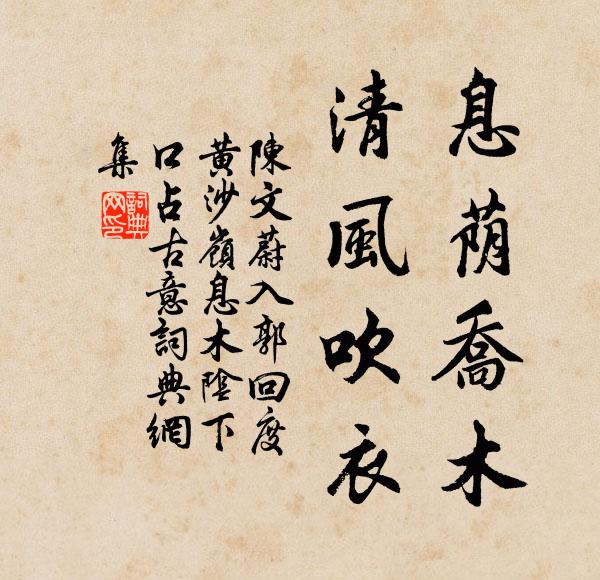 息荫喬木
清風吹衣
陳文蔚入郭回度
黄沙嶺息木陰下
口占古意詞典網
集
詞典
网印